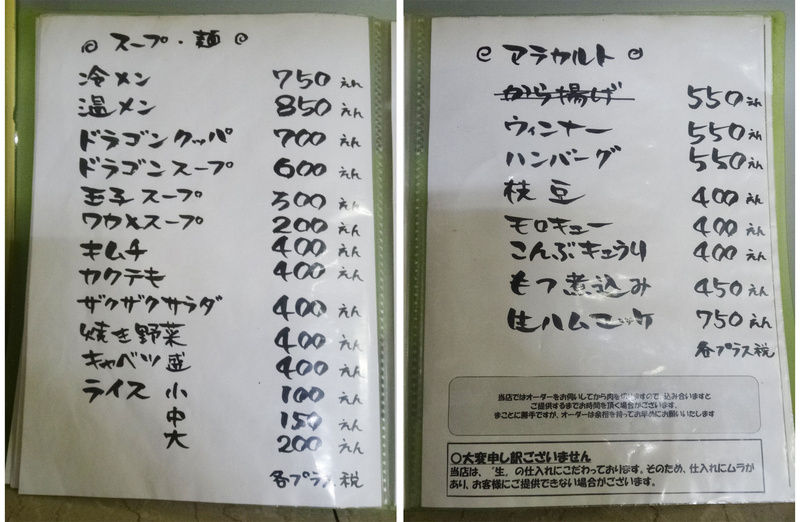 スープ・麺
冷メン 750えん
温メン 850えん
ドラゴンクッパ 700えん
ドラゴンスープ 600えん
玉子スープ 300えん
ワカメスープ 200えん
キムチ 400えん
カクテキ 400えん
ザクザクサラダ 400えん
焼き野菜 400えん
キャベツ盛 400えん
ライス 小 100えん
中 150えん
大 200えん
各プラス税
アラカルト
から揚げ 550えん
ウィンナー 550えん
ハンバーグ 550えん
枝豆 400えん
モロキュー 400えん
こんぶキュウリ 400えん
もつ煮込み 450えん
生ハムユッケ 750えん
各プラス税
当店ではオーダーをお伺いしてから肉を切りますので、込み合いますと
ご提供するまでお時間を頂く場合がございます。
まことに勝手ですが、オーダーは余裕を持ってお早めにお願いいたします
○大変申し訳ございません
当店は、“生”の仕入れにこだわっております。そのため、仕入れにムラが
あり、お客様にご提供できない場合がございます。